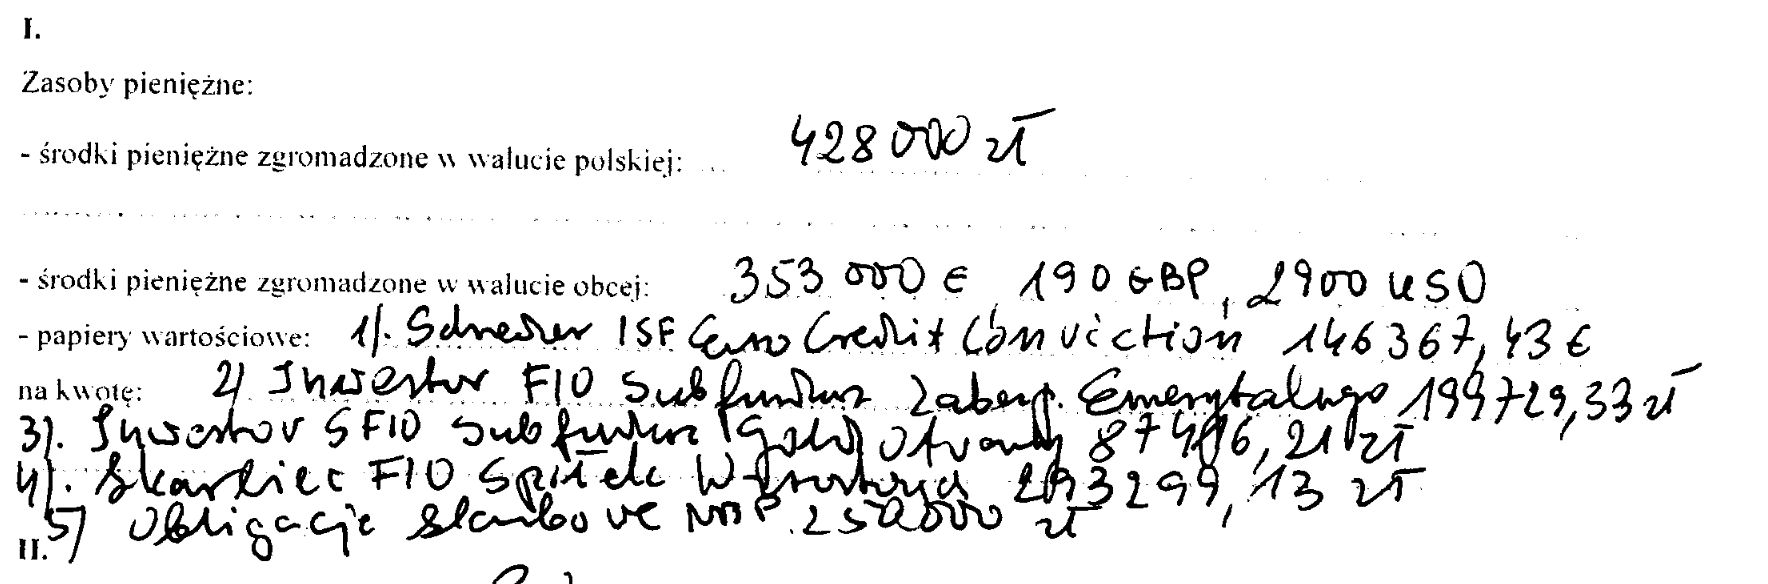 I.
Zasoby pieniężne:
- środki pieniężne zgromadzone w walucie polskiej: 428 000 zł
- środki pieniężne zgromadzone w walucie obcej: 353 000 € 190 GBP, 2900 USD
- papiery wartościowe: 1/. Schroder ISF Euro Credit Conviction 146 367,43 €
na kwotę: 2/ Investor FIO Subfundusz Zabezp. Emerytalnego 199729,33 zł
3/. Investor SFIO Subfundusz Gold Otwarty zł
4/. Skarbiec FIO Spółek Wzrostowych zł
5/ Obligacje skarbowe 250 000 zł
II.